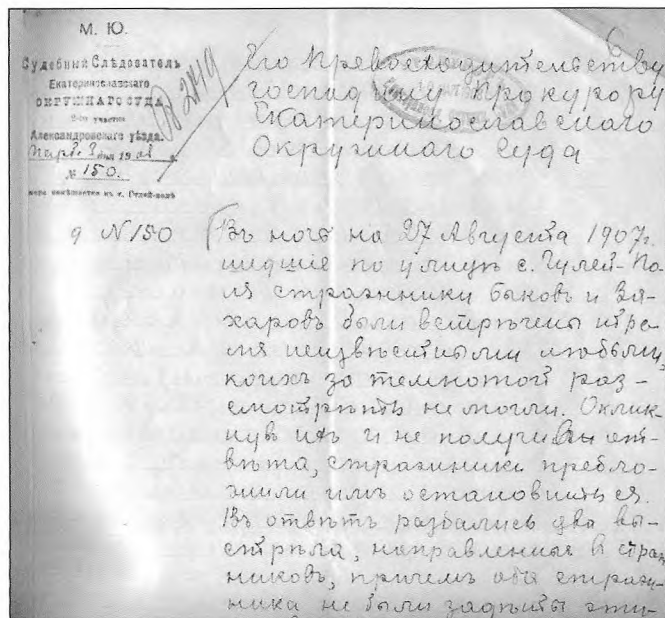 М. Ю.
Судебный Слѣдователь
Екатеринославскаго
ОКРУЖНАГО СУДА
2-го участка
Александровскаго уѣзда.
Марта 3 дня 1908 г.
№ 150.
6
Его Превосходительству
господину Прокурору
Екатеринославскаго
Окружнаго Суда
д №150
Въ ночь на 27 Августа 1907 г.
шедшіе по улицѣ с. Гуляй-По
ля стражники Быковъ и За
харовъ были встрѣчены тре
мя неизвѣстными людьми,
коихъ за темнотой раз-
смотрѣть не могли. Оклик
нувъ ихъ и не получивъ от
вѣта, стражники предло-
жили имъ остановиться.
Въ отвѣтъ раздались два вы-
стрѣла, направленные въ страж
никовъ, причемъ оба страж-
ника не были задѣты эти-